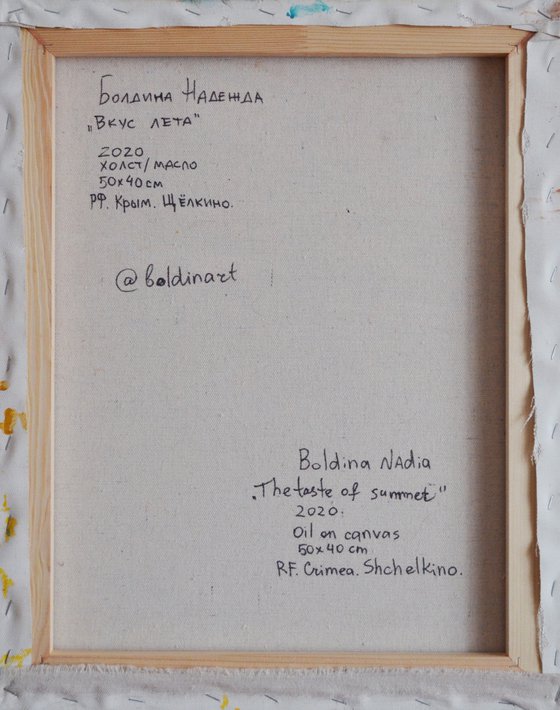 Болдина Надежда
„Вкус лета"
2020
холст/масло
50x40 см
РФ. Крым. Щёлкино.
@boldinart
Boldina Nadia
„The taste of summer"
2020.
Oil on canvas
50x40 cm
RF. Crimea. Shchelkino.